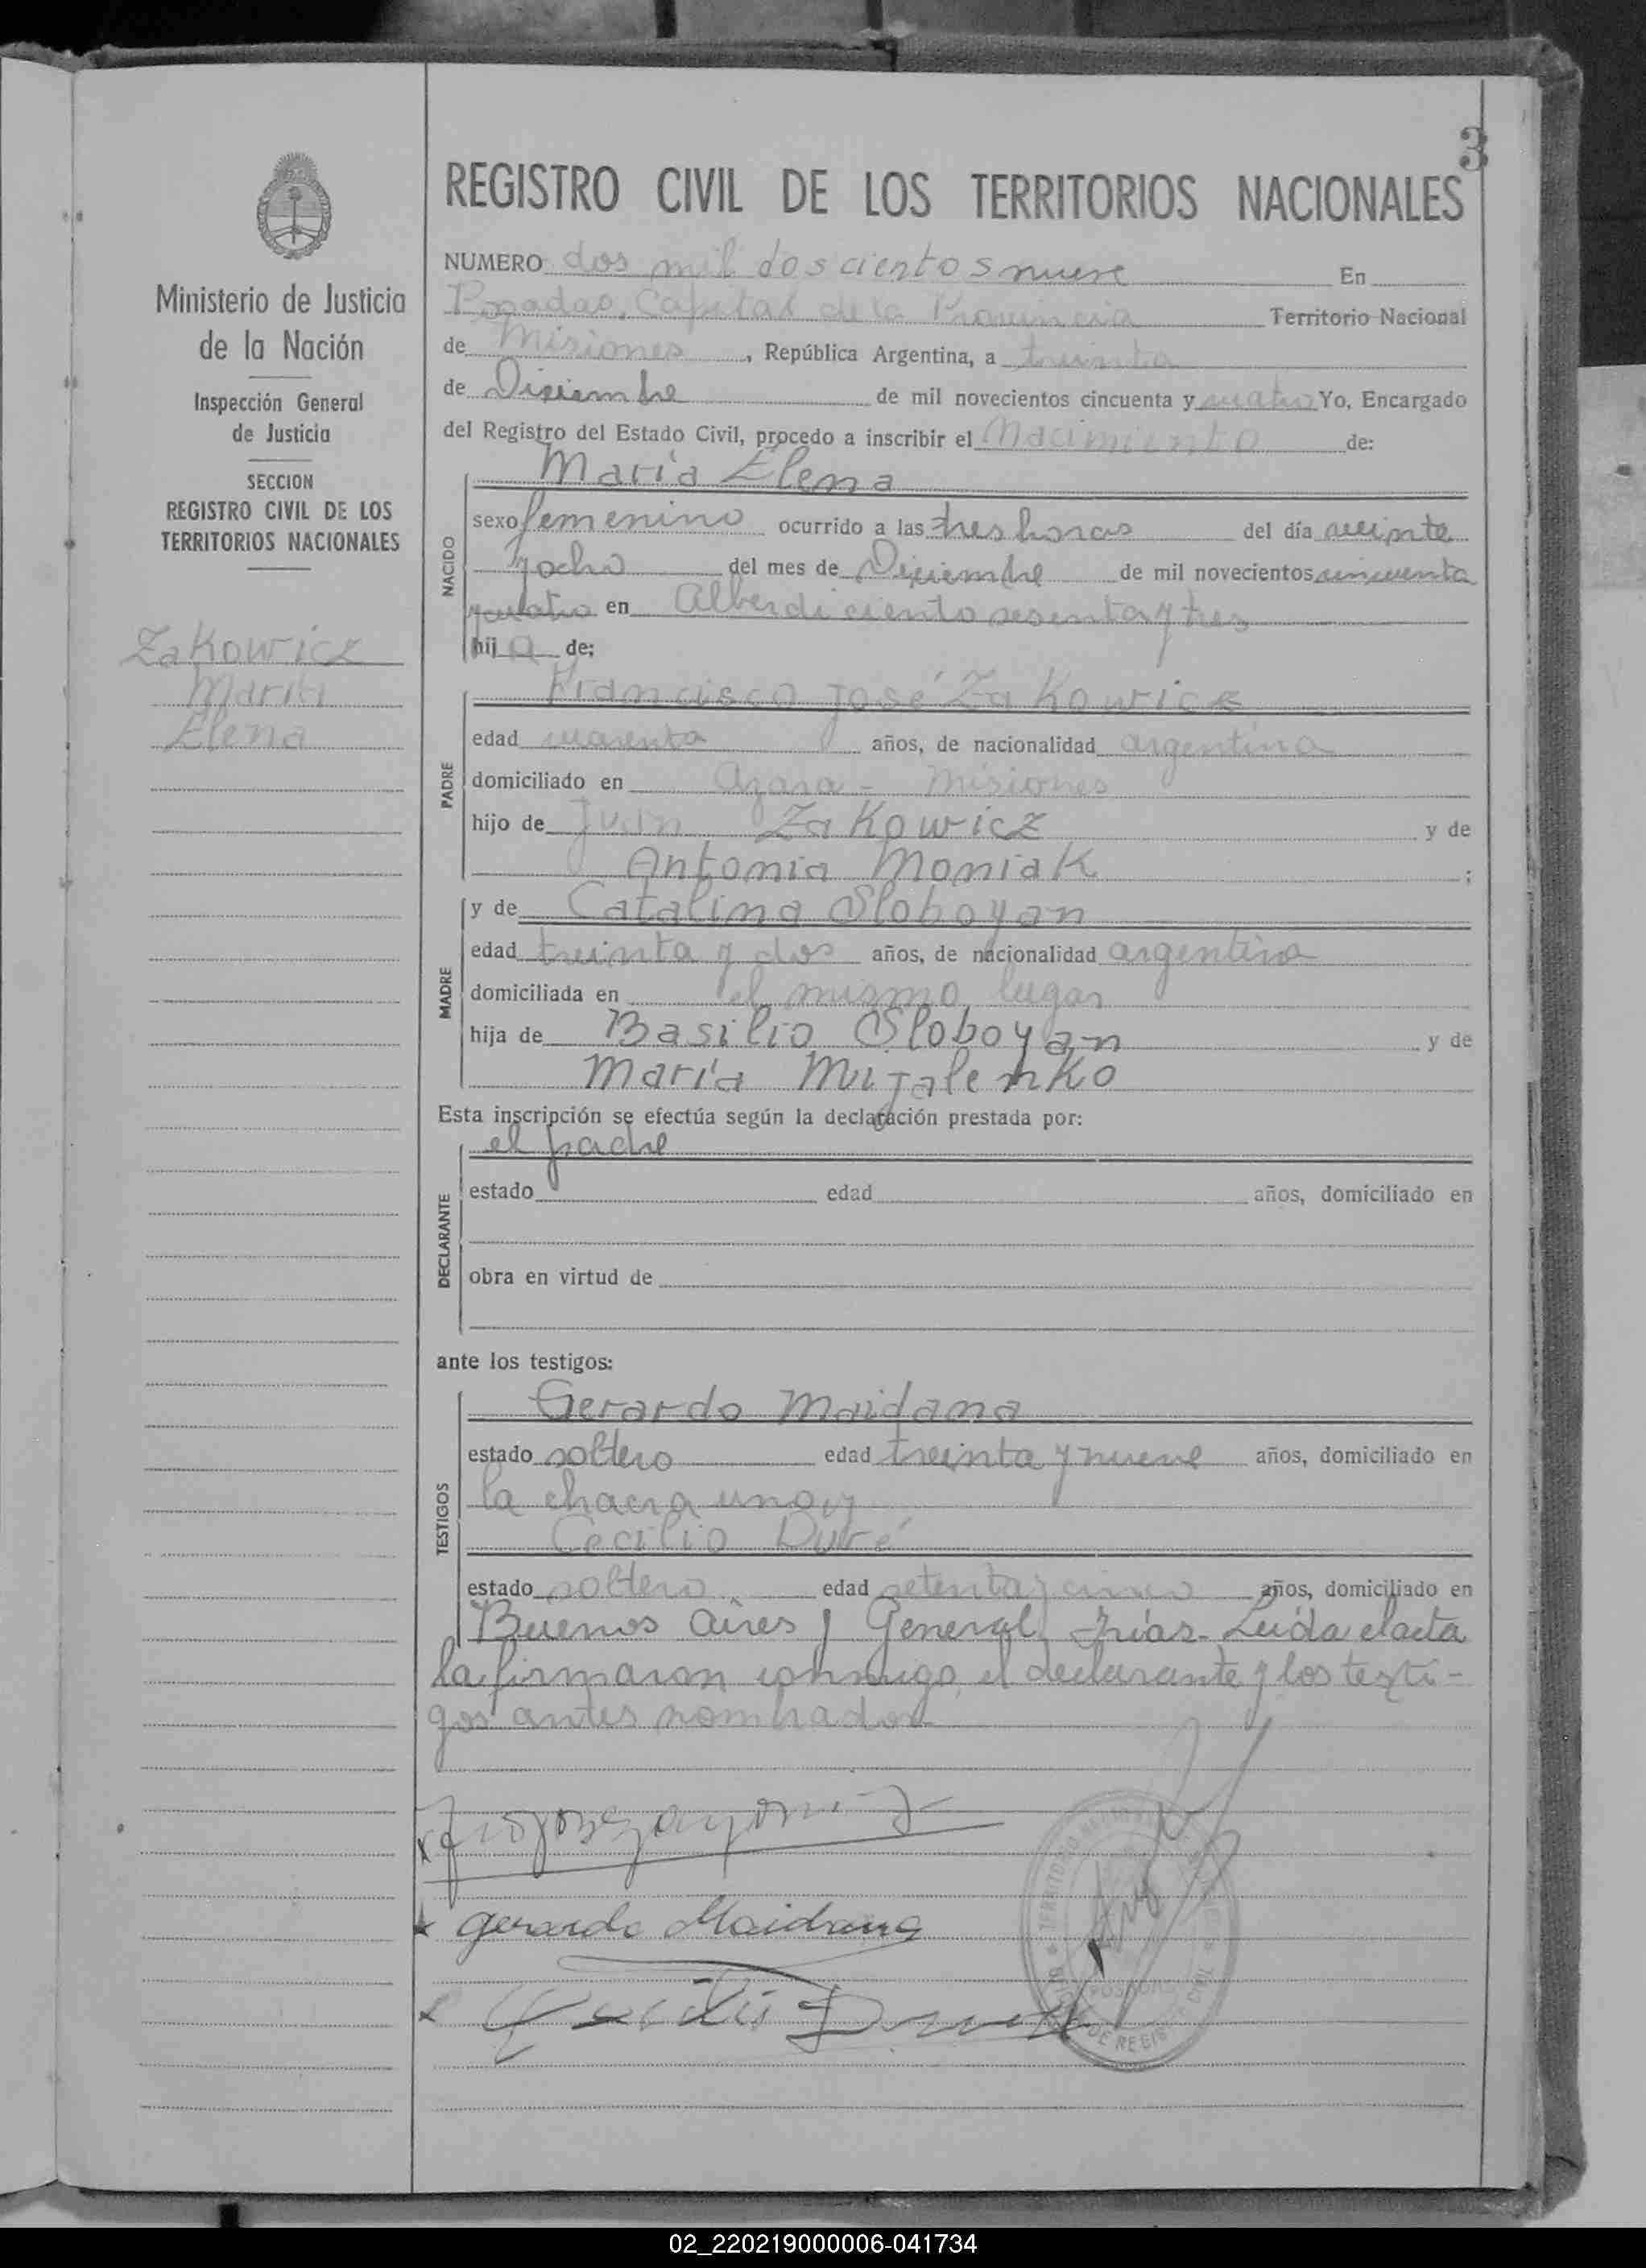 3
REGISTRO CIVIL DE LOS TERRITORIOS NACIONALES
Ministerio de Justicia
de la Nación
Inspección General
de Justicia
SECCION
REGISTRO CIVIL DE LOS
TERRITORIOS NACIONALES
Zakowicz
María
Elena
NUMERO dos mil doscientos nueve En
Posadas, Capital de la Provincia Territorio Nacional
de Misiones, República Argentina, a treinta
de Diciembre de mil novecientos cincuenta y cuatro Yo, Encargado
del Registro del Estado Civil, procedo a inscribir el Nacimiento de:
María Elena
NACIDO
sexo femenino ocurrido a las tres horas del día veinte
y ocho del mes de Diciembre de mil novecientos cincuenta
y cuatro en Alberdi ciento sesenta y tres
hija de:
Francisco José Zakowicz
PADRE
edad cuarenta años, de nacionalidad argentina
domiciliado en Azara - Misiones
hijo de Juan Zakowicz y de
Antonia Moniak ;
y de Catalina Sloboyan
MADRE
edad treinta y dos años, de nacionalidad argentina
domiciliada en el mismo lugar
hija de Basilio Sloboyan y de
María Mijalenko
Esta inscripción se efectúa según la declaración prestada por:
el padre
DECLARANTE
estado edad años, domiciliado en
obra en virtud de
ante los testigos:
Gerardo Maidana
TESTIGOS
estado soltero edad treinta y nueve años, domiciliado en
la chacra uno, y
Cecilio Duré
estado soltero edad setenta y cinco años, domiciliado en
Buenos Aires y General Frías. Leída el acta
la firmaron conmigo, el declarante y los testi-
gos antes nombrados
Gerardo Maidana
POSADAS
DE REGIS
02_220219000006-041734